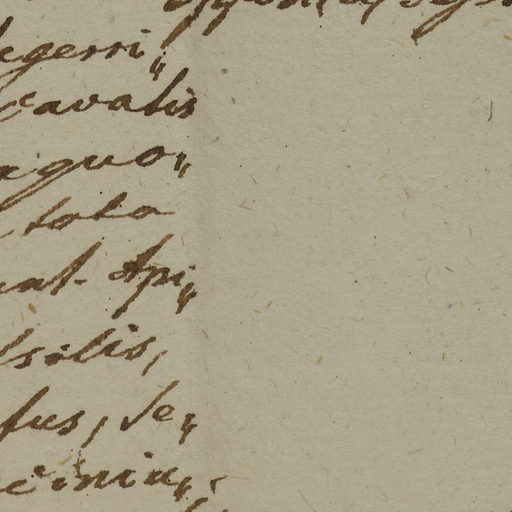 egerri„
cavatis
aquo„
toto
at. Api„
silis,
fus, Se„
ciniu„